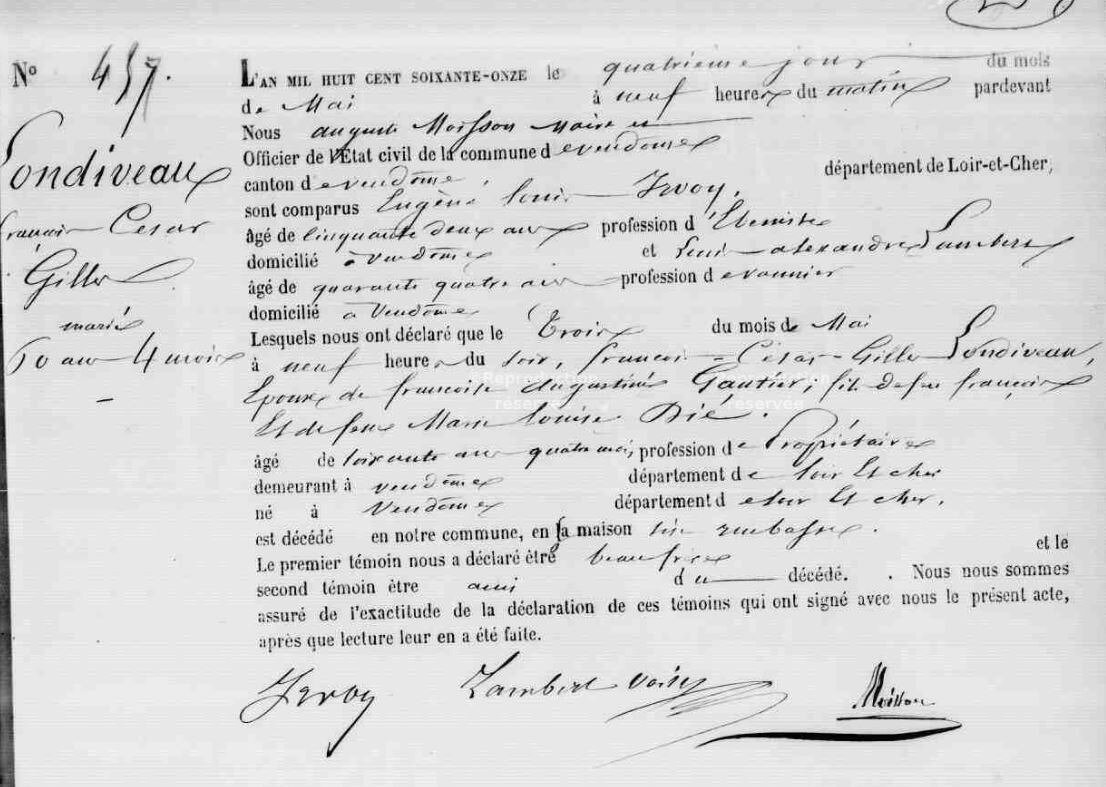 Nº 457.
Londiveau
François Cesar
Gilles
marié
60 ans 4 mois
L'AN MIL HUIT CENT SOIXANTE-ONZE le quatrième jour du mois
de Mai à neuf heures du matin pardevant
Nous auguste Moisson Maire et
Officier de l'Etat civil de la commune de vendome
canton de vendôme département de Loir-et-Cher,
sont comparus Eugène Louis Jrvoy,
âgé de cinquante deux ans profession d'Ebeniste
domicilié à Vendôme et Louis alexandre Lambert
âgé de quarante quatre ans profession de vannier
domicilié à Vendôme
Lesquels nous ont déclaré que le Trois du mois de Mai
à neuf heures du soir, françois-César-Gilles Londiveau,
Epoux de françoise Augustine Gautier, fils de feu françois
Et de feue Marie Louise Dié.
âgé de soixante ans quatre mois, profession de Propriétaire
demeurant à vendôme département de Loir Et cher
né à Vendôme département de Loir Et cher,
est décédé en notre commune, en sa maison sise rue basse.
Le premier témoin nous a déclaré être beau frère et le
second témoin être ami du décédé. Nous nous sommes
assuré de l'exactitude de la déclaration de ces témoins qui ont signé avec nous le présent acte,
après que lecture leur en a été faite.
Jrvoy Lambert Moisson
Reproduction
réservée
Reproduction
réservée